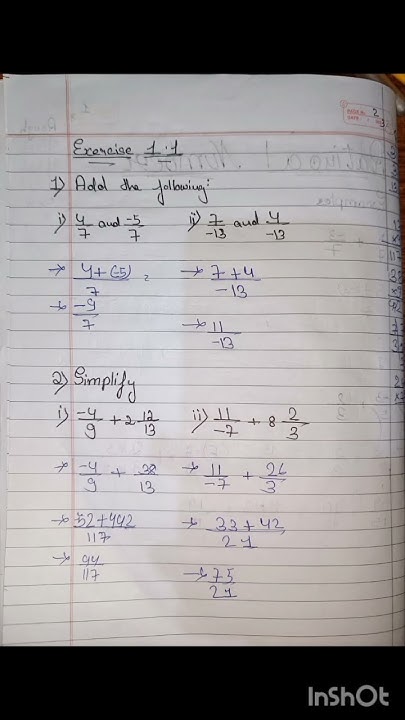 2
3
Exercise 1.1
1) Add the following:
i) 4/7 and -5/7 ii) 7/-13 and 4/-13
→ 4+(-5)/7 → 7+4/-13
→ -9/7 → 11/-13
2) Simplify
i) -4/9 + 2 12/13 ii) 11/-7 + 8 2/3
→ -4/9 + 38/13 → 11/-7 + 26/3
→ 52+442/117 → 33+42/21
→ 94/117 → 75/21
InShOt